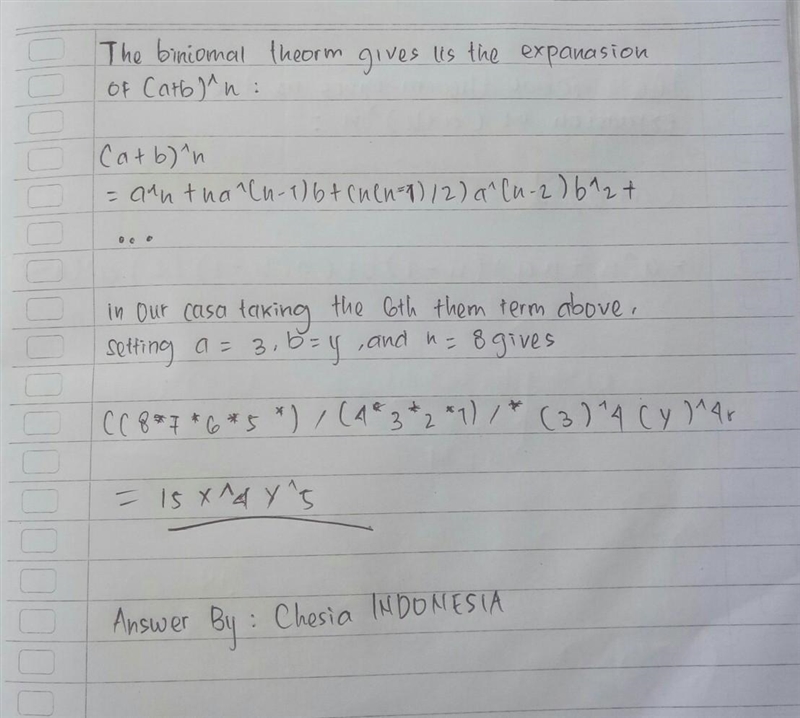 The biniomal theorm gives us the expanasion
of (a+b)^n :
(a+b)^n
= a^n + na^(n-1)b + (n(n=1)/2)a^(n-2)b^2 +
...
in our casa taking the 6th them term above,
setting a = 3, b=y, and n = 8 gives
((8*7*6*5*)/(4*3*2*1)/* (3)^4 (y)^4r
= 15 x^4 y^5
Answer By : Chesia INDONESIA